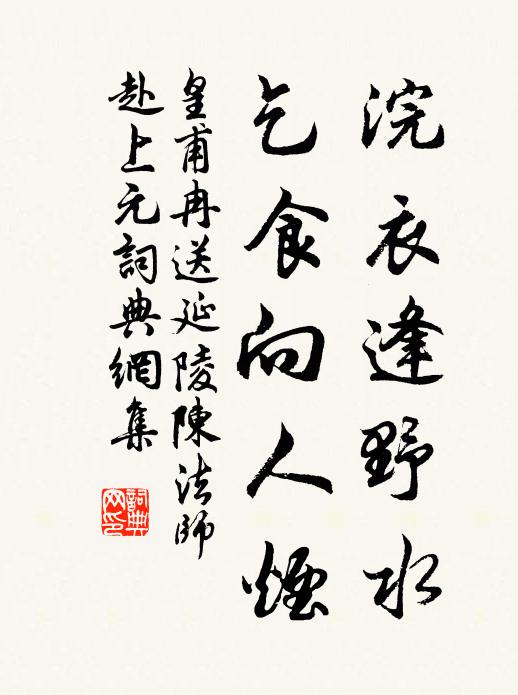 浣衣逢野水
乞食向人煙
皇甫冉送延陵陳法師
赴上元詞典網集
詞典网印